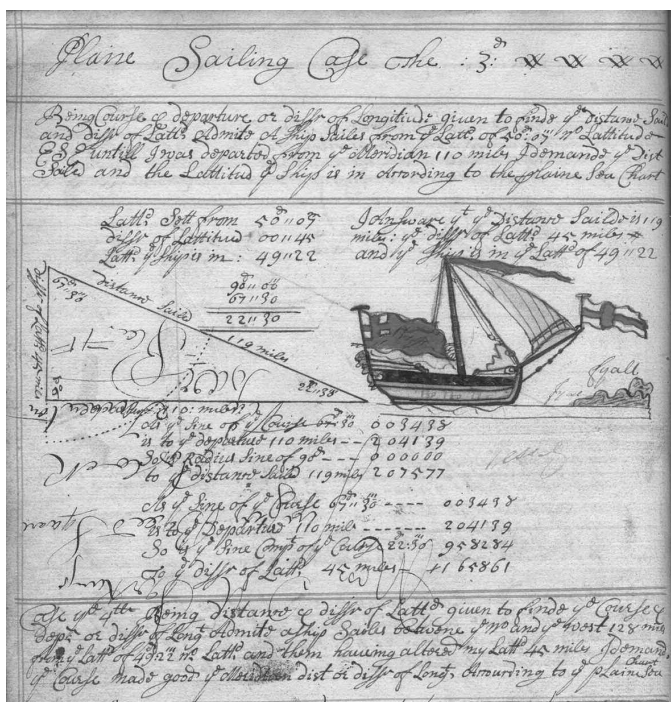 Plaine Sailing Case the :3:d
Being Course & departure or differ of Longitude given to finde ye distance Saild
and differ of Lattd Admite A Ship Sailes from ye Latt. of 50: 07 No Lattitude
E S E untill I was departed from ye Meridian 110 miles I demande ye Dist
Saild and the Lattitud ye Ship is in According to the plaine Sea Chart
Lattd Sett from 50 11 07
differ of Lattitud 00 11 45
Lattd ye Ship is in : 49 11 22
I Answare yt ye Distance Saild is 119
miles: ye differ of Lattd 45 miles
and ye Ship is in ye Lattd of 49 11 22
90 11 00
67 11 30
22 11 30
distance Saild
119 miles
67 11 30
22 11 30
differ of Lattd 45 miles
90
departure 110: miles:
As ye Sine of ye Course 67 30 003438
is to ye departure 110 miles -- 204139
So is Radius Sine of 90 -- 000000
to ye distance Saild 119 miles 207577
As ye Sine of ye Course 67 30 ---- 003438
is to ye Departure 110 miles ------ 204139
So is ye Sine Compt of ye Course 22:30 958284
To ye differ of Lattd 45 miles -- 1165861
Case ye 4th Being distance & differ of Lattd given to finde ye Course &
dept or differ of Longt Admite a Ship Sailes betwene ye No and ye West 128 miles
from ye Lattd of 49d 22 No Lattd and then having altered my Latt 45 miles I demand
ye Course made good ye Meridian dist or differ of Longt According to ye plaine Sea
Chart